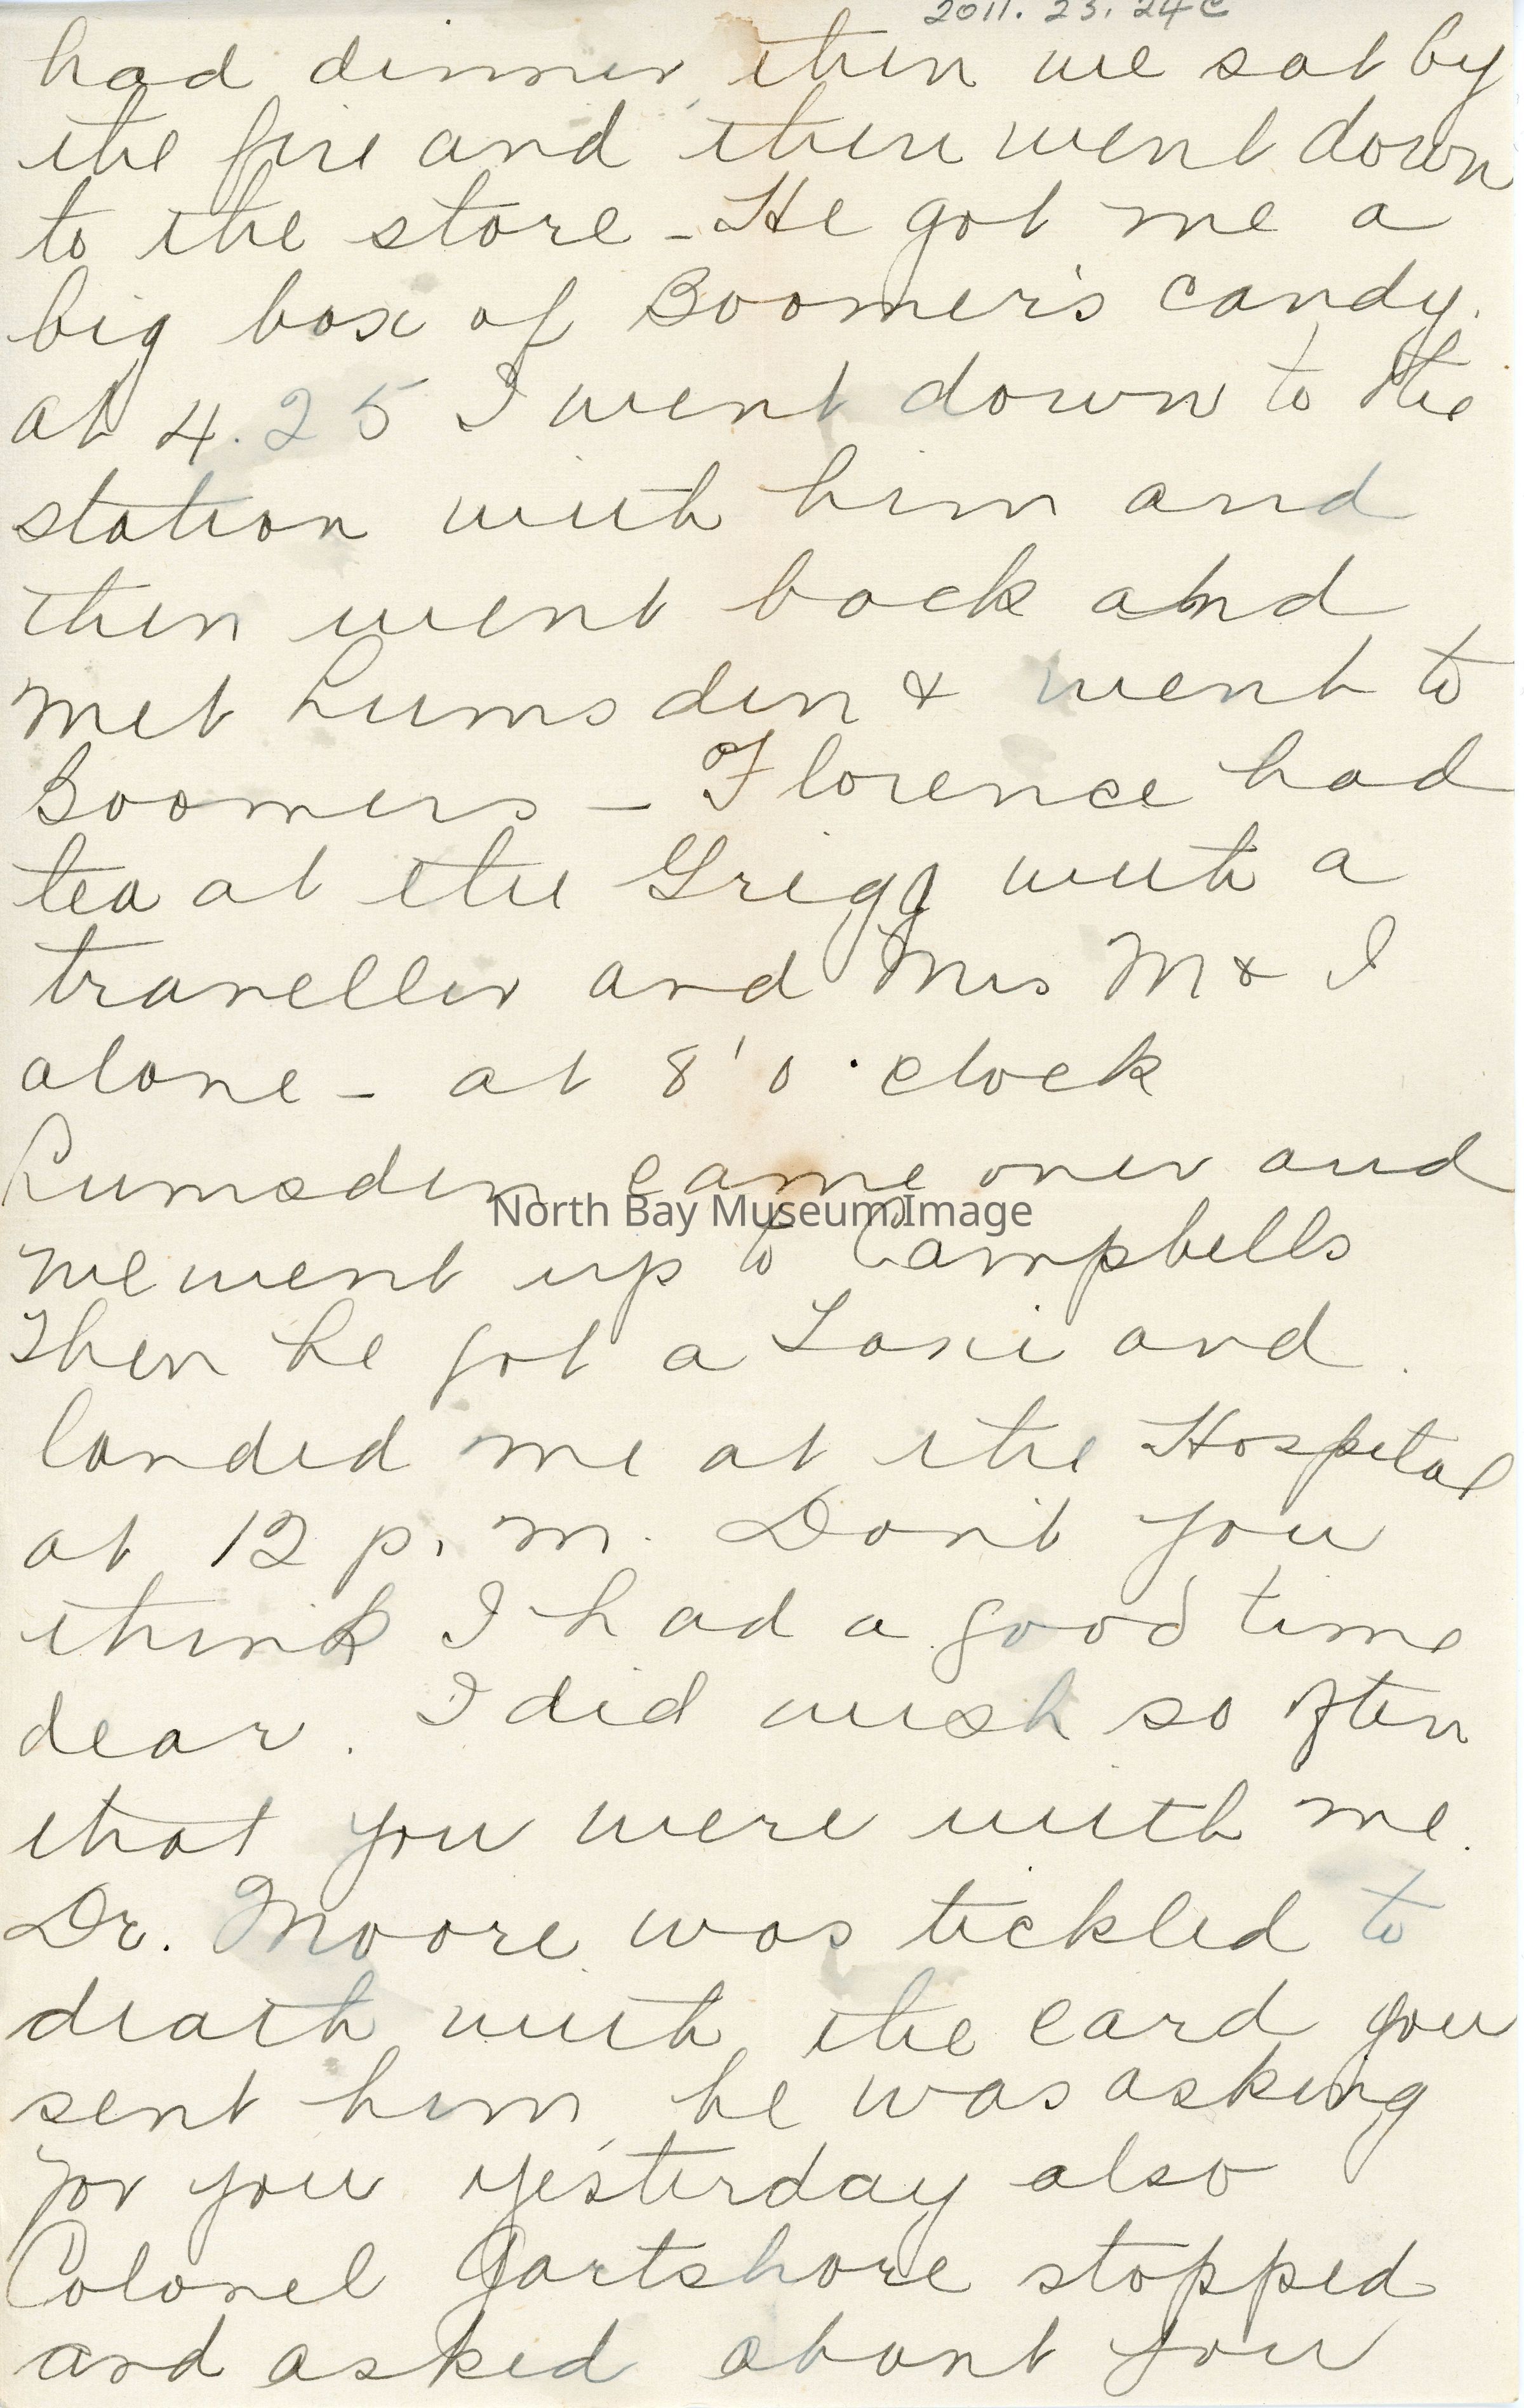 2011. 23. 24C
had dinner, then we sat by
the fire and then went down
to the store - He got me a
big box of Boomer's candy.
at 4.25 I went down to the
station with him and
then went back and
met Lumsden & went to
Boomers - Florence had
tea at the Grigg with a
traveller and Mrs M & I
alone - at 8'o'clock
Lumsden came over and
we went up to Campbells
Then he got a Taxi and
landed me at the Hospital
at 12 p.m. Don't you
think I had a good time
dear. I did wish so often
that you were with me.
Dr. Moore was tickled to
death with the card you
sent him, he was asking
for you yesterday also
Colonel Gartshore stopped
and asked about you
North Bay Museum Image